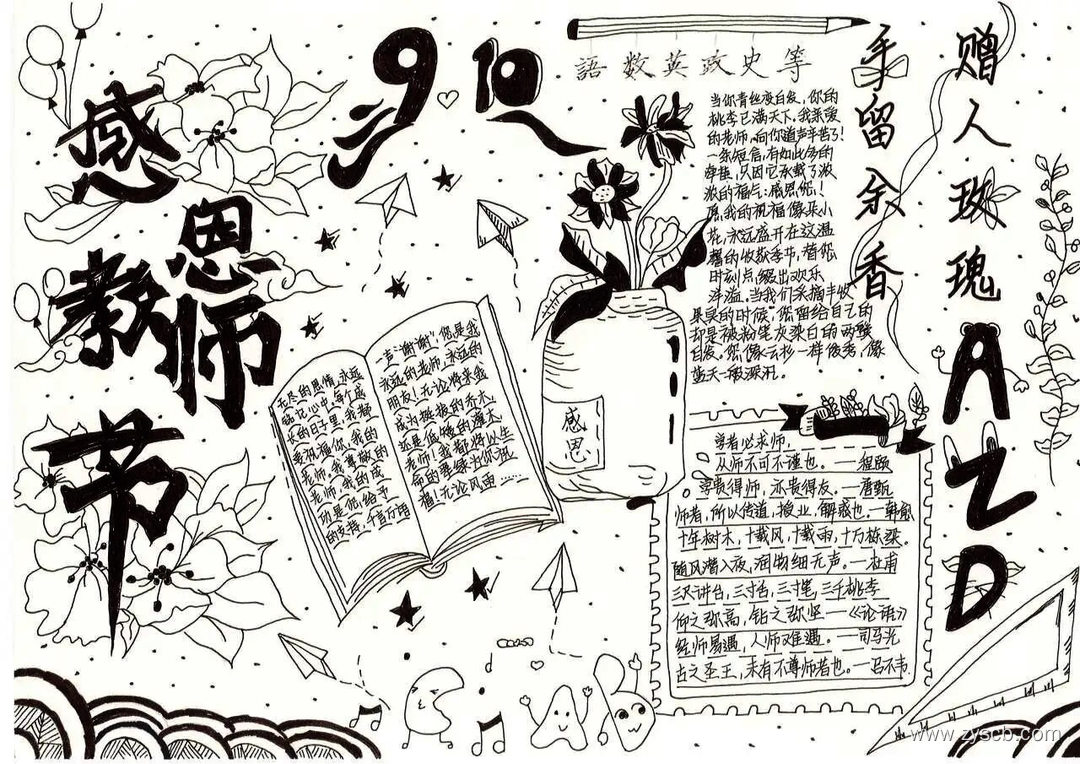 感
恩
教
师
节
9.10
語数英政史等
当你青丝变白发，你的
桃李已满天下。我亲爱
的老师，向你道声辛苦了！
一条短信，有如此多的
牵挂，只因它承载了浓
浓的福气：感恩您！
愿我的祝福像朵小
花，永远盛开在这温
馨的收获季节，替您
时刻点缀出欢乐
洋溢。当我们采摘丰收
果实的时候，您留给自己的
却是被粉笔灰染白的两鬓
白发。您像云杉一样俊秀，像
蓝天一般深沉。
赠人玫瑰
手留余香
无尽的恩情，永远
铭记心中。每个成
长的日子里，我都
要祝福你，我的
老师，我尊敬的
老师，我的成
功是您给予
的支持，千言万语
一言"谢谢"，您是我
永远的老师，永远的
朋友！无论将来我
成为挺拔的乔木，
还是低矮的灌木，
老师，我都将以生
命的翠绿为你祝
福！无论风雨……
感
恩
学者必求师，
从师不可不谨也。——程颐
学贵得师，亦贵得友。——唐甄
师者，所以传道、授业、解惑也。——韩愈
十年树木，十载风，十载雨，十万栋梁。
随风潜入夜，润物细无声。——杜甫
三尺讲台，三寸舌，三寸笔，三千桃李
仰之弥高，钻之弥坚——《论语》
经师易遇，人师难遇。——司马光
古之圣王，未有不尊师者也。——吕不韦
www.zyscb.com